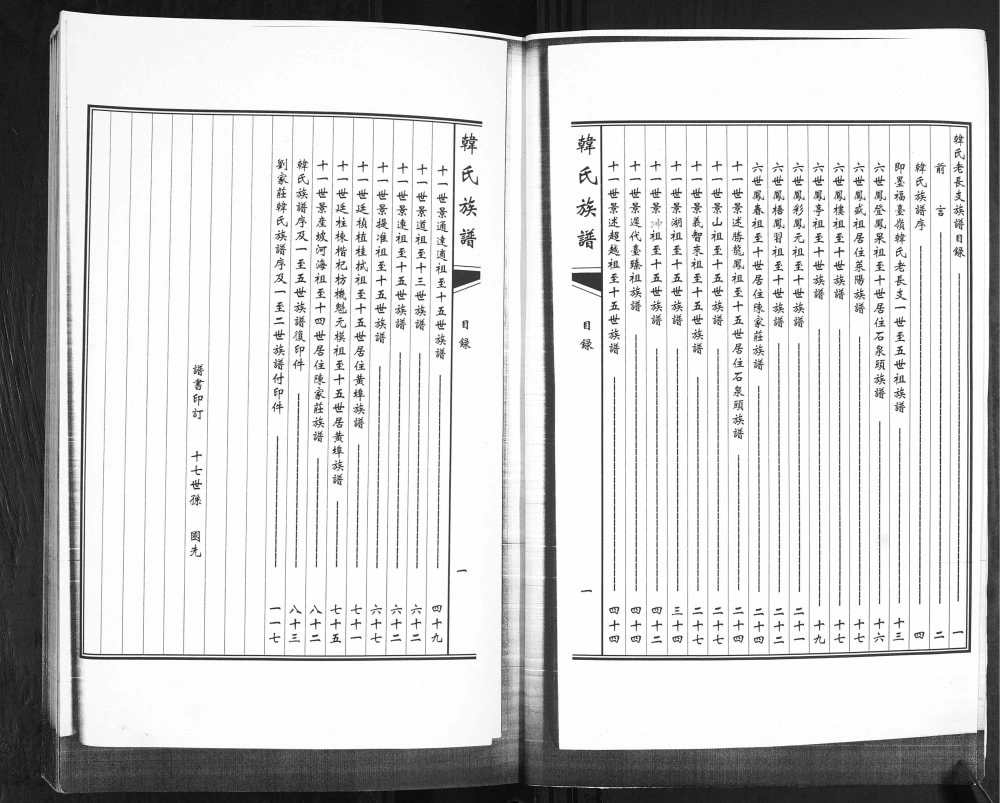 韓氏老長支族譜目錄 一
前言 二
韓氏族譜序 四
即墨福臺嶺韓氏老長支一世至五世祖族譜 十三
六世鳳登鳳杲祖至十世居住石泉頭族譜 十六
六世鳳武祖居住萊陽族譜 十七
六世鳳樓祖至十世族譜 十七
六世鳳亭祖至十世族譜 十九
六世鳳彩鳳元祖至十世族譜 二十一
六世鳳梧鳳習祖至十世族譜 二十二
六世鳳春祖至十世居住陳家莊族譜 二十四
十一世景述勝龍鳳祖至十五世居住石泉頭族譜 二十四
十一世景山祖至十五世族譜 二十七
十一世景義智來祖至十五世族譜 二十七
十一世景湖祖至十五世族譜 三十四
十一世景沙祖至十五世族譜 四十二
十一世景遲代臺臻祖族譜 四十四
十一世景述超越祖至十五世族譜 四十四
韓氏族譜
目錄
一
韓氏族譜
目錄
一
十一世景通達適祖至十五世族譜 四十九
十一世景道祖至十三世族譜 六十二
十一世景連祖至十五世族譜 六十二
十一世景提准祖至十五世族譜 六十七
十一世廷楨植桂栻祖至十五世居住黃埠族譜 七十一
十一世廷柱棟楷杞枋機魁元模祖至十五世居黃埠族譜 七十五
十一世景産坡河海祖至十四世居住陳家莊族譜 八十二
韓氏族譜序及一至五世族譜復印件 八十三
劉家莊韓氏族譜序及一至二世族譜付印件 一一七
譜書印訂 十七世孫 國先